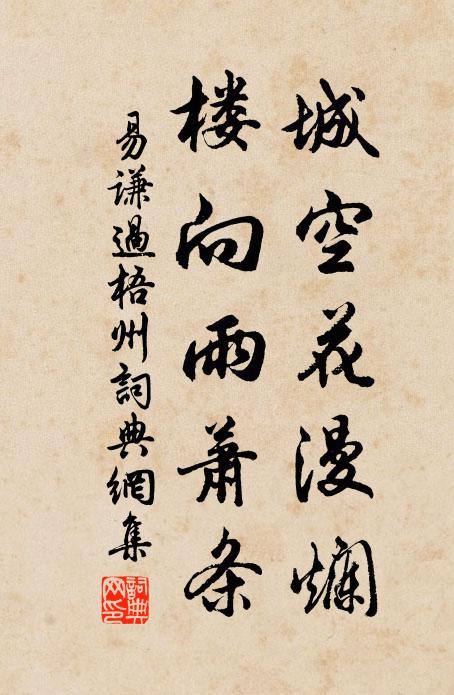 城空花漫爛
楼向雨蕭条
易谦過梧州詞典網集
詞典
网印